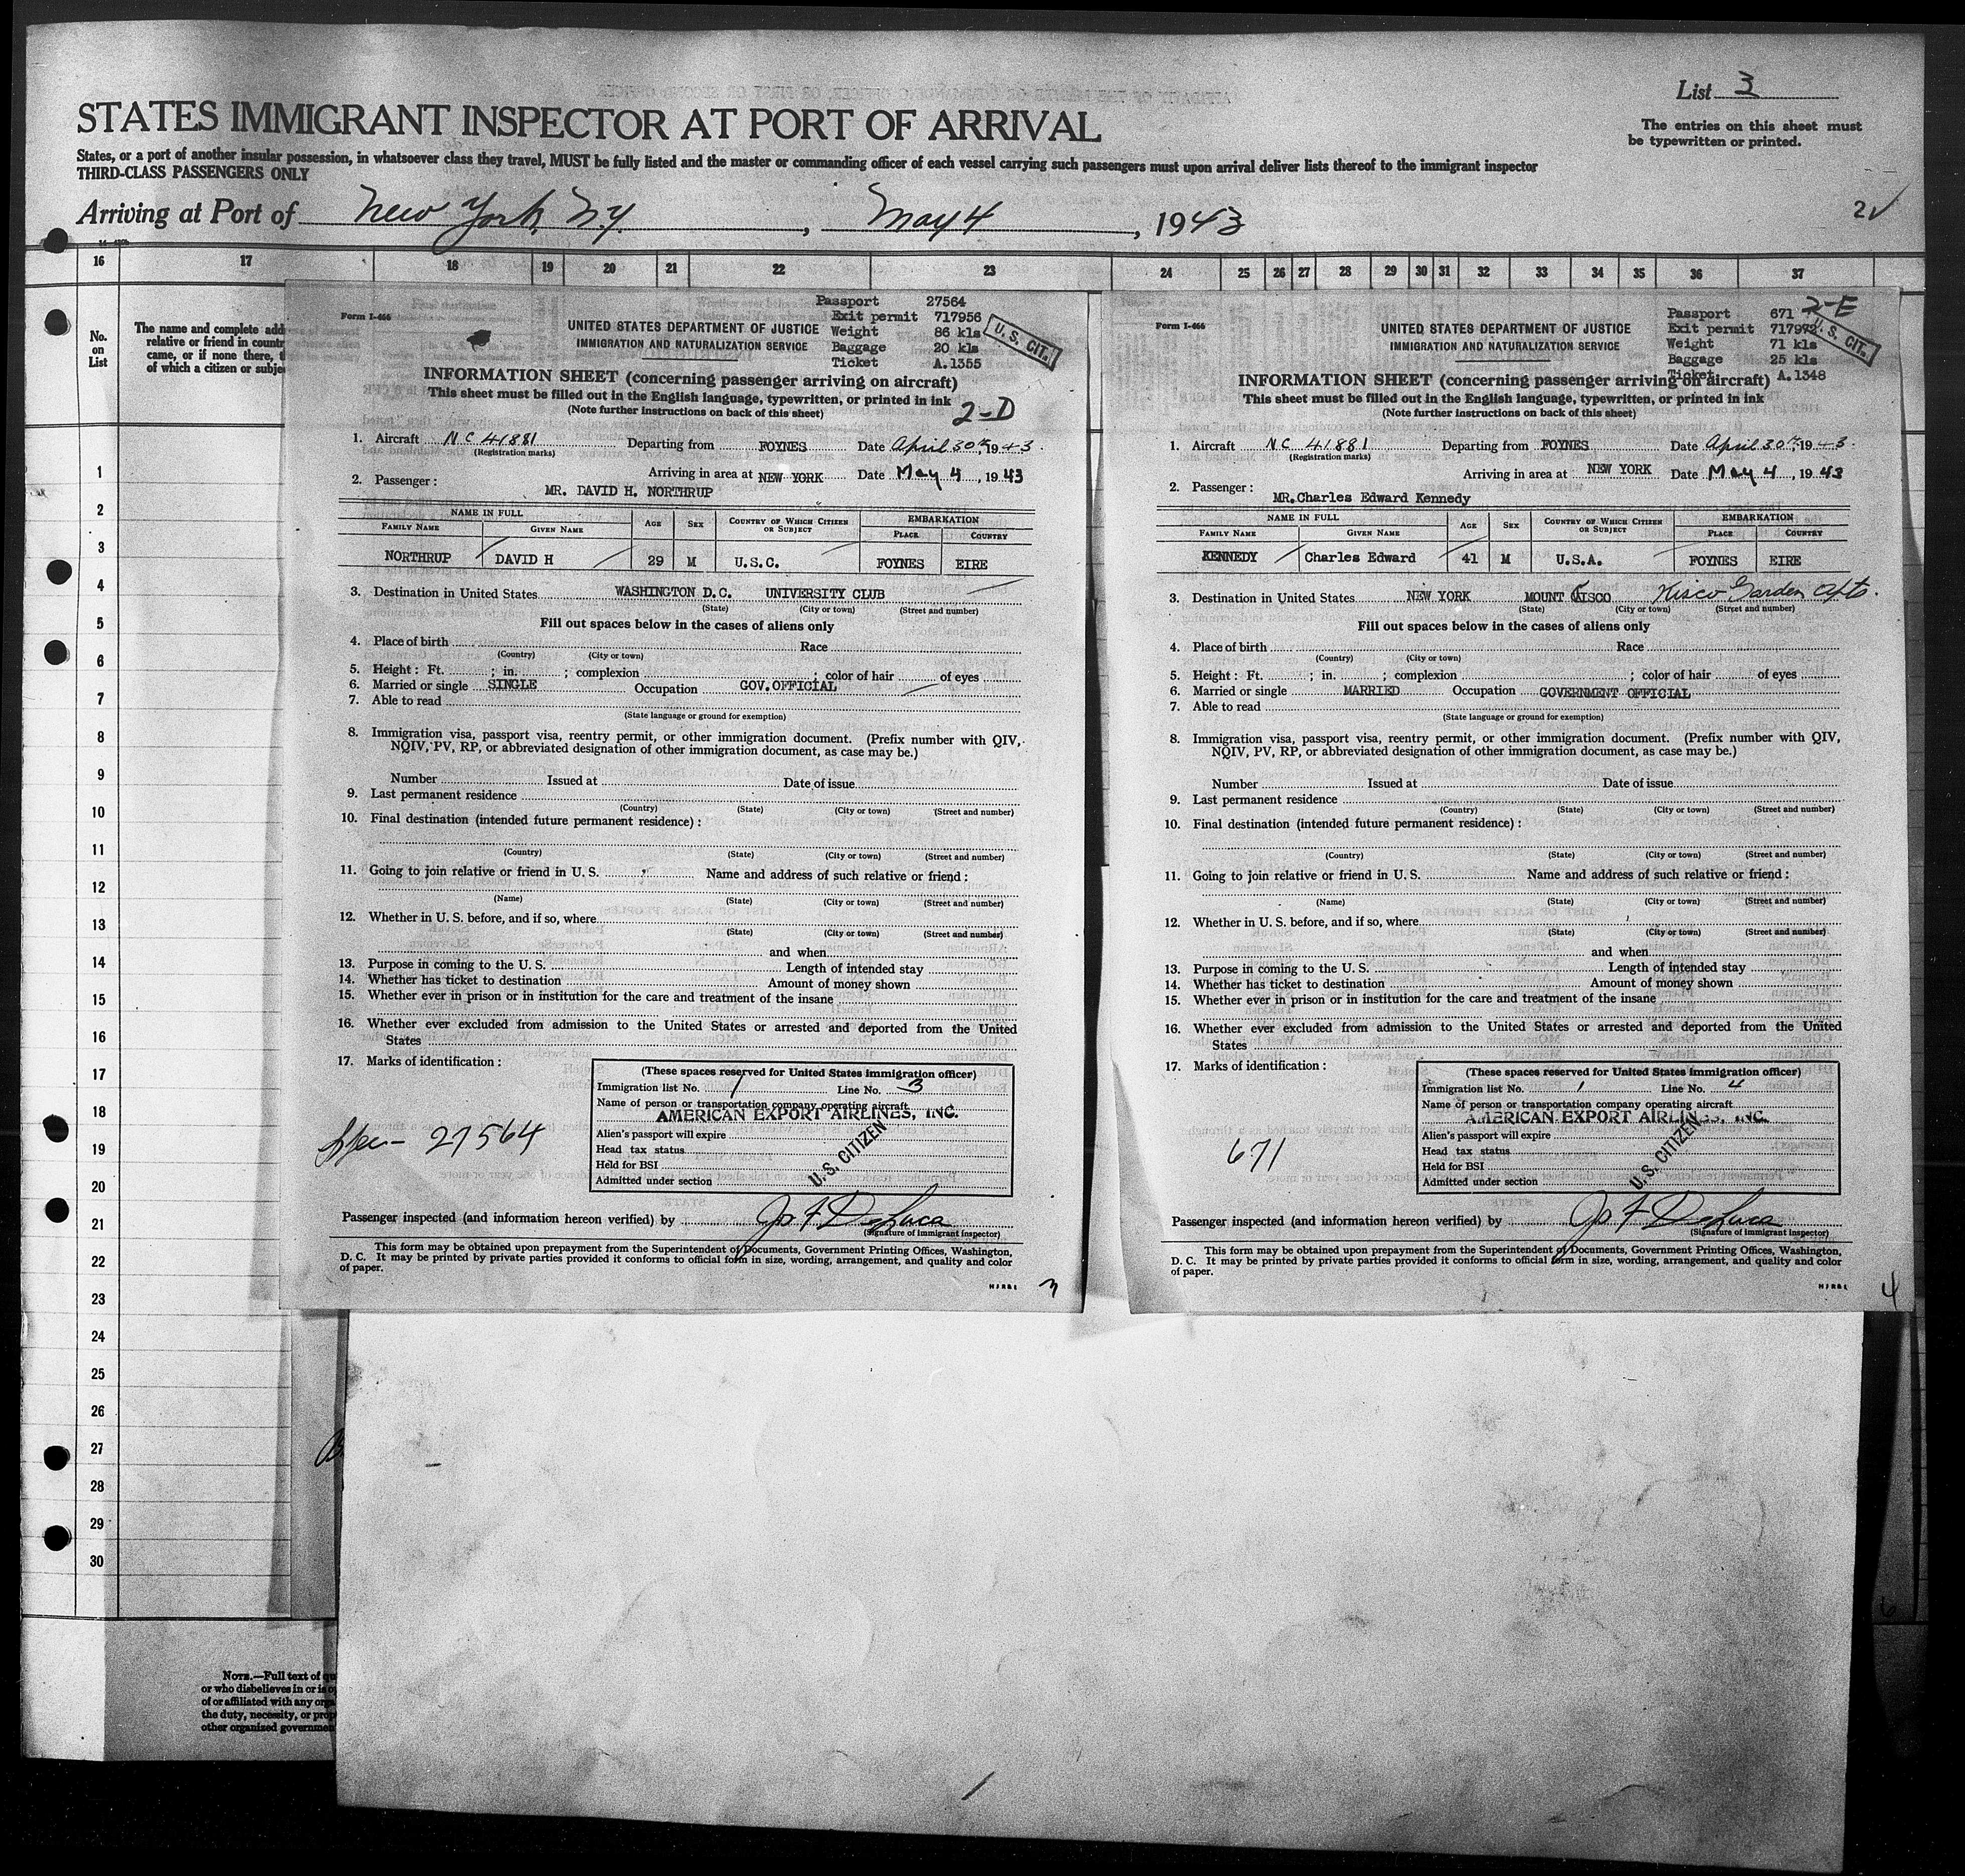 List 3
STATES IMMIGRANT INSPECTOR AT PORT OF ARRIVAL
The entries on this sheet must
be typewritten or printed.
States, or a port of another insular possession, in whatsoever class they travel, MUST be fully listed and the master or commanding officer of each vessel carrying such passengers must upon arrival deliver lists thereof to the immigrant inspector
THIRD-CLASS PASSENGERS ONLY
Arriving at Port of New York, N.Y., May 4, 1943
2✓
16 17 18 19 20 21 22 23 24 25 26 27 28 29 30 31 32 33 34 35 36 37
No.
on
List
The name and complete add
relative or friend in countr
came, or if none there, t
of which a citizen or subje
1
2
3
4
5
6
7
8
9
10
11
12
13
14
15
16
17
18
19
20
21
22
23
24
25
26
27
28
29
30
NOTE.—Full text of qu
or who disbelieves in or is o
of or affiliated with any orga
the duty, necessity, or prop
other organized governmen
Form I-466
Passport 27564
Exit permit 717956
Weight 86 kls
Baggage 20 kls
Ticket A.1355
U. S. CIT.
UNITED STATES DEPARTMENT OF JUSTICE
IMMIGRATION AND NATURALIZATION SERVICE
INFORMATION SHEET (concerning passenger arriving on aircraft)
This sheet must be filled out in the English language, typewritten, or printed in ink
(Note further instructions on back of this sheet)
2-D
1. Aircraft NC 41881 Departing from FOYNES Date April 30th, 1943.
(Registration marks)
Arriving in area at NEW YORK Date May 4, 1943
2. Passenger:
MR. DAVID H. NORTHRUP
NAME IN FULL AGE SEX COUNTRY OF WHICH CITIZEN OR SUBJECT EMBARKATION
FAMILY NAME GIVEN NAME PLACE COUNTRY
NORTHRUP DAVID H 29 M U.S.C. FOYNES EIRE
3. Destination in United States WASHINGTON D.C. UNIVERSITY CLUB
(State) (City or town) (Street and number)
Fill out spaces below in the cases of aliens only
4. Place of birth Race
(Country) (City or town)
5. Height: Ft. ; in. ; complexion ; color of hair of eyes
6. Married or single SINGLE Occupation GOV.OFFICIAL
7. Able to read
(State language or ground for exemption)
8. Immigration visa, passport visa, reentry permit, or other immigration document. (Prefix number with QIV,
NQIV, PV, RP, or abbreviated designation of other immigration document, as case may be.)
Number Issued at Date of issue
9. Last permanent residence
(Country) (State) (City or town) (Street and number)
10. Final destination (intended future permanent residence):
(Country) (State) (City or town) (Street and number)
11. Going to join relative or friend in U. S. Name and address of such relative or friend:
(Name) (State) (City or town) (Street and number)
12. Whether in U. S. before, and if so, where
(State) (City or town) (Street and number)
and when
13. Purpose in coming to the U. S. Length of intended stay
14. Whether has ticket to destination Amount of money shown
15. Whether ever in prison or in institution for the care and treatment of the insane
16. Whether ever excluded from admission to the United States or arrested and deported from the United
States
17. Marks of identification:
(These spaces reserved for United States immigration officer)
Immigration list No. 1 Line No. 3
Name of person or transportation company operating aircraft
AMERICAN EXPORT AIRLINES, INC.
Alien's passport will expire
Head tax status
Held for BSI
Admitted under section
U. S. CITIZEN
27564
Passenger inspected (and information hereon verified) by Jos F DeLuca
(Signature of immigrant inspector)
This form may be obtained upon prepayment from the Superintendent of Documents, Government Printing Offices, Washington,
D. C. It may be printed by private parties provided it conforms to official form in size, wording, arrangement, and quality and color
of paper.
3
Form I-466
Passport 671
Exit permit 717972
Weight 71 kls
Baggage 25 kls
Ticket A.1348
2-E
U. S. CIT.
UNITED STATES DEPARTMENT OF JUSTICE
IMMIGRATION AND NATURALIZATION SERVICE
INFORMATION SHEET (concerning passenger arriving on aircraft)
This sheet must be filled out in the English language, typewritten, or printed in ink
(Note further instructions on back of this sheet)
1. Aircraft NC 41881 Departing from FOYNES Date April 30th, 1943.
(Registration marks)
Arriving in area at NEW YORK Date May 4, 1943
2. Passenger:
MR.Charles Edward Kennedy
NAME IN FULL AGE SEX COUNTRY OF WHICH CITIZEN OR SUBJECT EMBARKATION
FAMILY NAME GIVEN NAME PLACE COUNTRY
KENNEDY Charles Edward 41 M U.S.A. FOYNES EIRE
3. Destination in United States NEW YORK MOUNT KISCO Kisco Garden Apts.
(State) (City or town) (Street and number)
Fill out spaces below in the cases of aliens only
4. Place of birth Race
(Country) (City or town)
5. Height: Ft. ; in. ; complexion ; color of hair of eyes
6. Married or single MARRIED Occupation GOVERNMENT OFFICIAL
7. Able to read
(State language or ground for exemption)
8. Immigration visa, passport visa, reentry permit, or other immigration document. (Prefix number with QIV,
NQIV, PV, RP, or abbreviated designation of other immigration document, as case may be.)
Number Issued at Date of issue
9. Last permanent residence
(Country) (State) (City or town) (Street and number)
10. Final destination (intended future permanent residence):
(Country) (State) (City or town) (Street and number)
11. Going to join relative or friend in U. S. Name and address of such relative or friend:
(Name) (State) (City or town) (Street and number)
12. Whether in U. S. before, and if so, where
(State) (City or town) (Street and number)
and when
13. Purpose in coming to the U. S. Length of intended stay
14. Whether has ticket to destination Amount of money shown
15. Whether ever in prison or in institution for the care and treatment of the insane
16. Whether ever excluded from admission to the United States or arrested and deported from the United
States
17. Marks of identification:
(These spaces reserved for United States immigration officer)
Immigration list No. 1 Line No. 4
Name of person or transportation company operating aircraft
AMERICAN EXPORT AIRLINES, INC.
Alien's passport will expire
Head tax status
Held for BSI
Admitted under section
U. S. CITIZEN
671
Passenger inspected (and information hereon verified) by Jos F DeLuca
(Signature of immigrant inspector)
This form may be obtained upon prepayment from the Superintendent of Documents, Government Printing Offices, Washington,
D. C. It may be printed by private parties provided it conforms to official form in size, wording, arrangement, and quality and color
of paper.
4